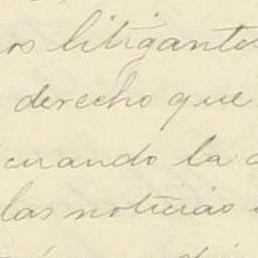 litigantes
derecho que
cuando la
las noticias